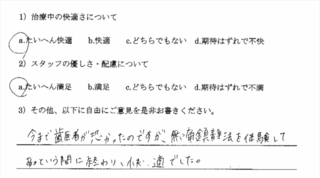 1) 治療中の快適さについて
a.たいへん快適 b.快適 c.どちらでもない d.期待はずれで不快
2) スタッフの優しさ・配慮について
a.たいへん満足 b.満足 c.どちらでもない d.期待はずれで不満
3) その他、以下に自由にご意見を是非お書きください。
今まで歯医者が恐かったのですが、無痛鎮静法を体験して
あっという間に終わり、快適でした。